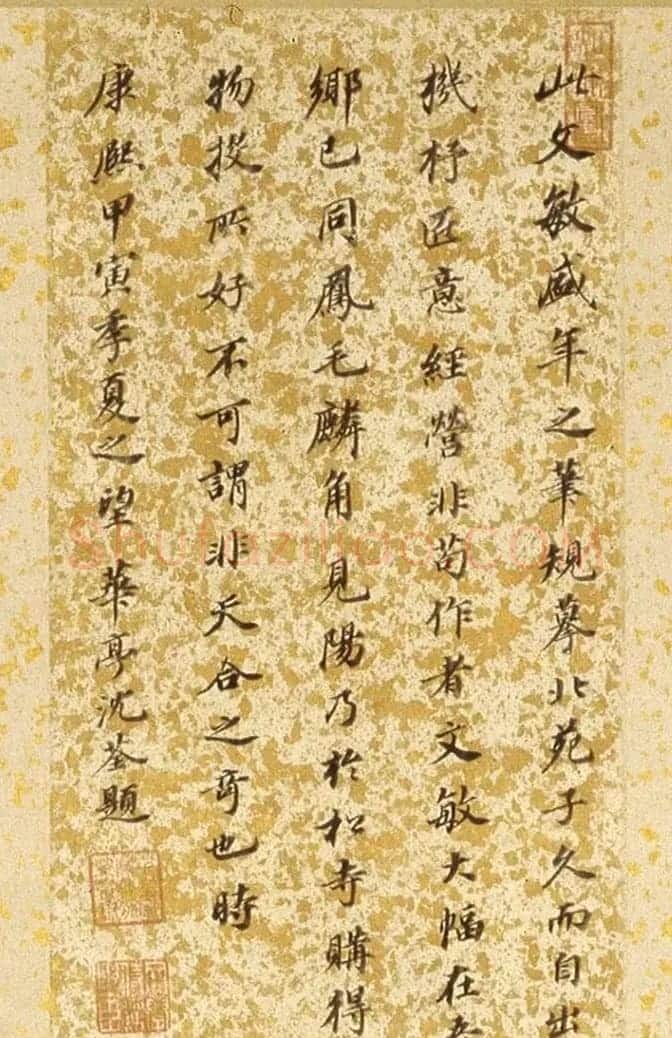 此文敏盛年之筆規摹北苑子久而自出
機杼匠意經營非苟作者文敏大幅在吾
鄉已同鳳毛麟角見陽乃於松寺購得
物投所好不可謂非天合之奇也時
康熙甲寅季夏之望華亭沈荃題
shufaziliao.com